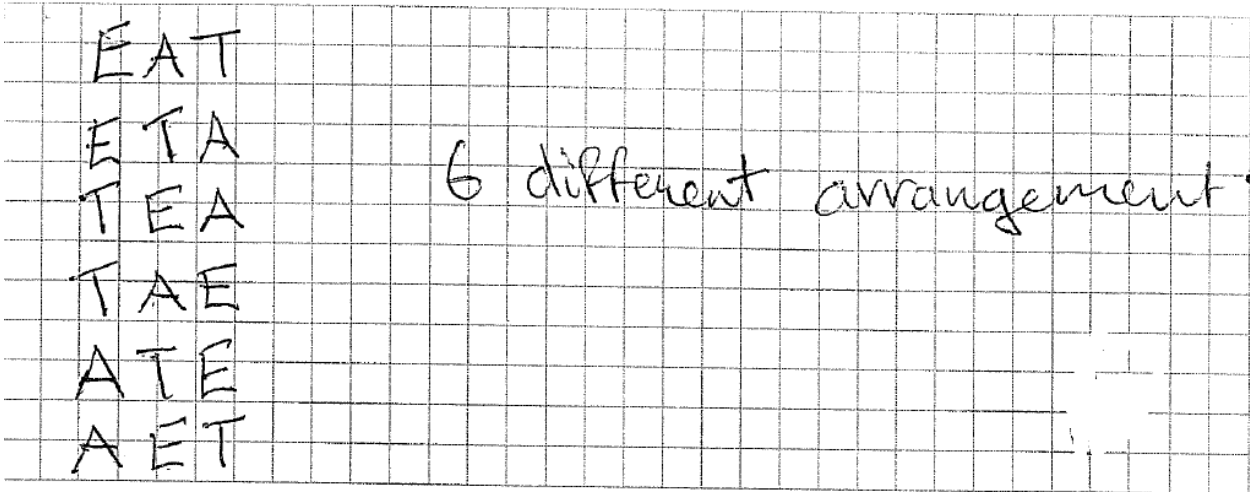 EAT
ETA
TEA
TAE
ATE
AET
6 different arrangement